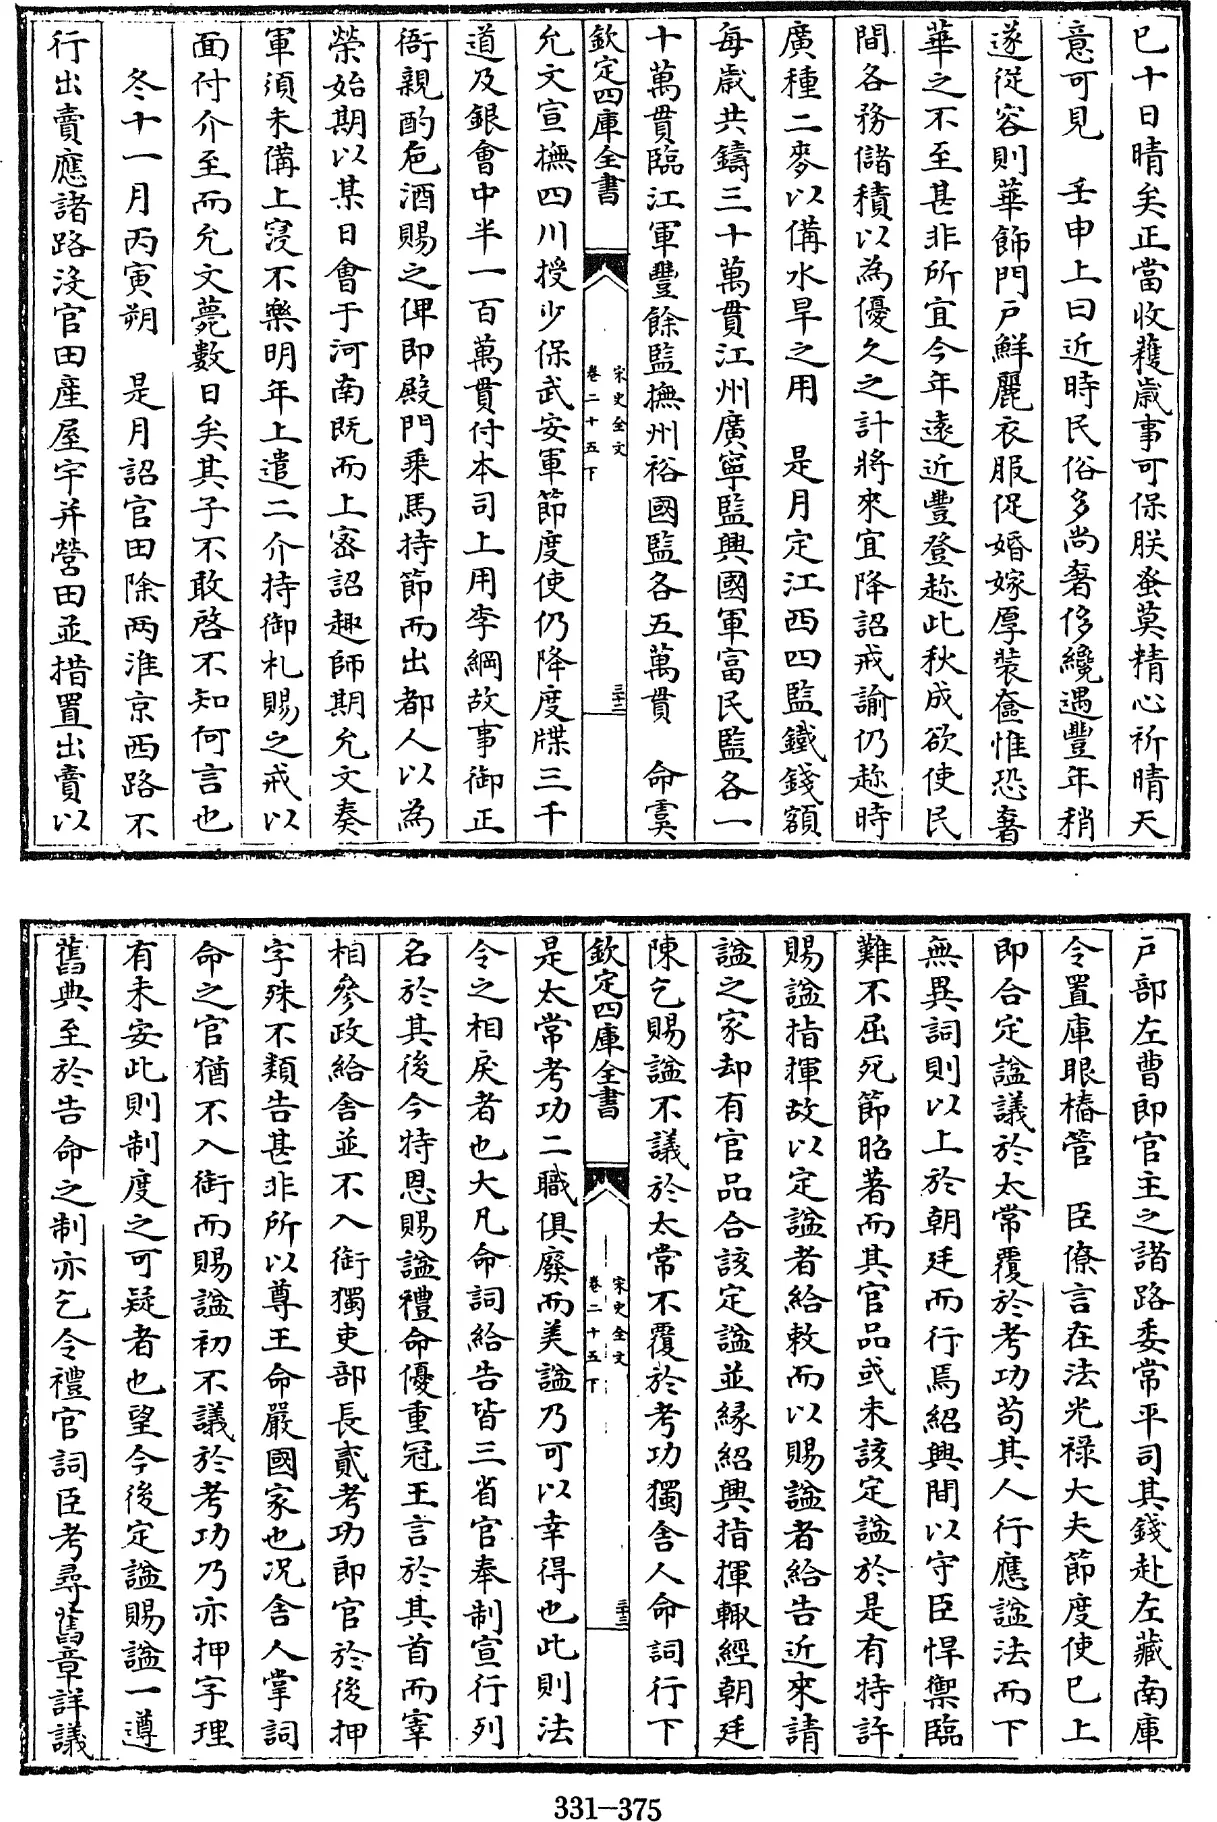 已十日晴矣正當收穫歲事可保朕蚤莫精心祈晴天
意可見　壬申上曰近時民俗多尚奢侈纔遇豐年稍
遂從容則華飾門戶鮮麗衣服促婚嫁厚裝奩惟恐奢
華之不至甚非所宜今年遠近豐登趂此秋成欲使民
間各務儲積以為優久之計將來宜降詔戒諭仍趂時
廣種二麥以備水旱之用　是月定江西四監鐵錢額
每歲共鑄三十萬貫江州廣寧監興國軍富民監各一
十萬貫臨江軍豐餘監撫州裕國監各五萬貫　命虞
欽定四庫全書
宋史全文
卷二十五下
三十二
允文宣撫四川授少保武安軍節度使仍降度牒三千
道及銀會中半一百萬貫付本司上用李綱故事御正
衙親酌卮酒賜之俾即殿門乘馬持節而出都人以為
榮始期以某日會于河南既而上密詔趣師期允文奏
軍須未備上寖不樂明年上遣二介持御札賜之戒以
面付介至而允文薨數日矣其子不敢啓不知何言也
冬十一月丙寅朔　是月詔官田除两淮京西路不
行出賣應諸路沒官田產屋宇并營田並措置出賣以
戶部左曹郎官主之諸路委常平司其錢赴左藏南庫
令置庫眼樁管　臣僚言在法光禄大夫節度使已上
即合定諡議於太常覆於考功苟其人行應諡法而下
無異詞則以上於朝廷而行焉紹興間以守臣悍禦臨
難不屈死節昭著而其官品或未該定諡於是有特許
賜諡指揮故以定諡者給敕而以賜諡者給告近來請
諡之家却有官品合該定諡並緣紹興指揮輙經朝廷
陳乞賜諡不議於太常不覆於考功獨舍人命詞行下
欽定四庫全書
宋史全文
卷二十五下
三十三
是太常考功二職俱廢而美諡乃可以幸得也此則法
令之相戾者也大凡命詞給告皆三省官奉制宣行列
名於其後今特恩賜諡禮命優重冠王言於其首而宰
相參政給舍並不入銜獨吏部長貳考功郎官於後押
字殊不類告甚非所以尊王命嚴國家也况舍人掌詞
命之官猶不入銜而賜諡初不議於考功乃亦押字理
有未安此則制度之可疑者也望今後定諡賜諡一遵
舊典至於告命之制亦乞令禮官詞臣考尋舊章詳議
331-375